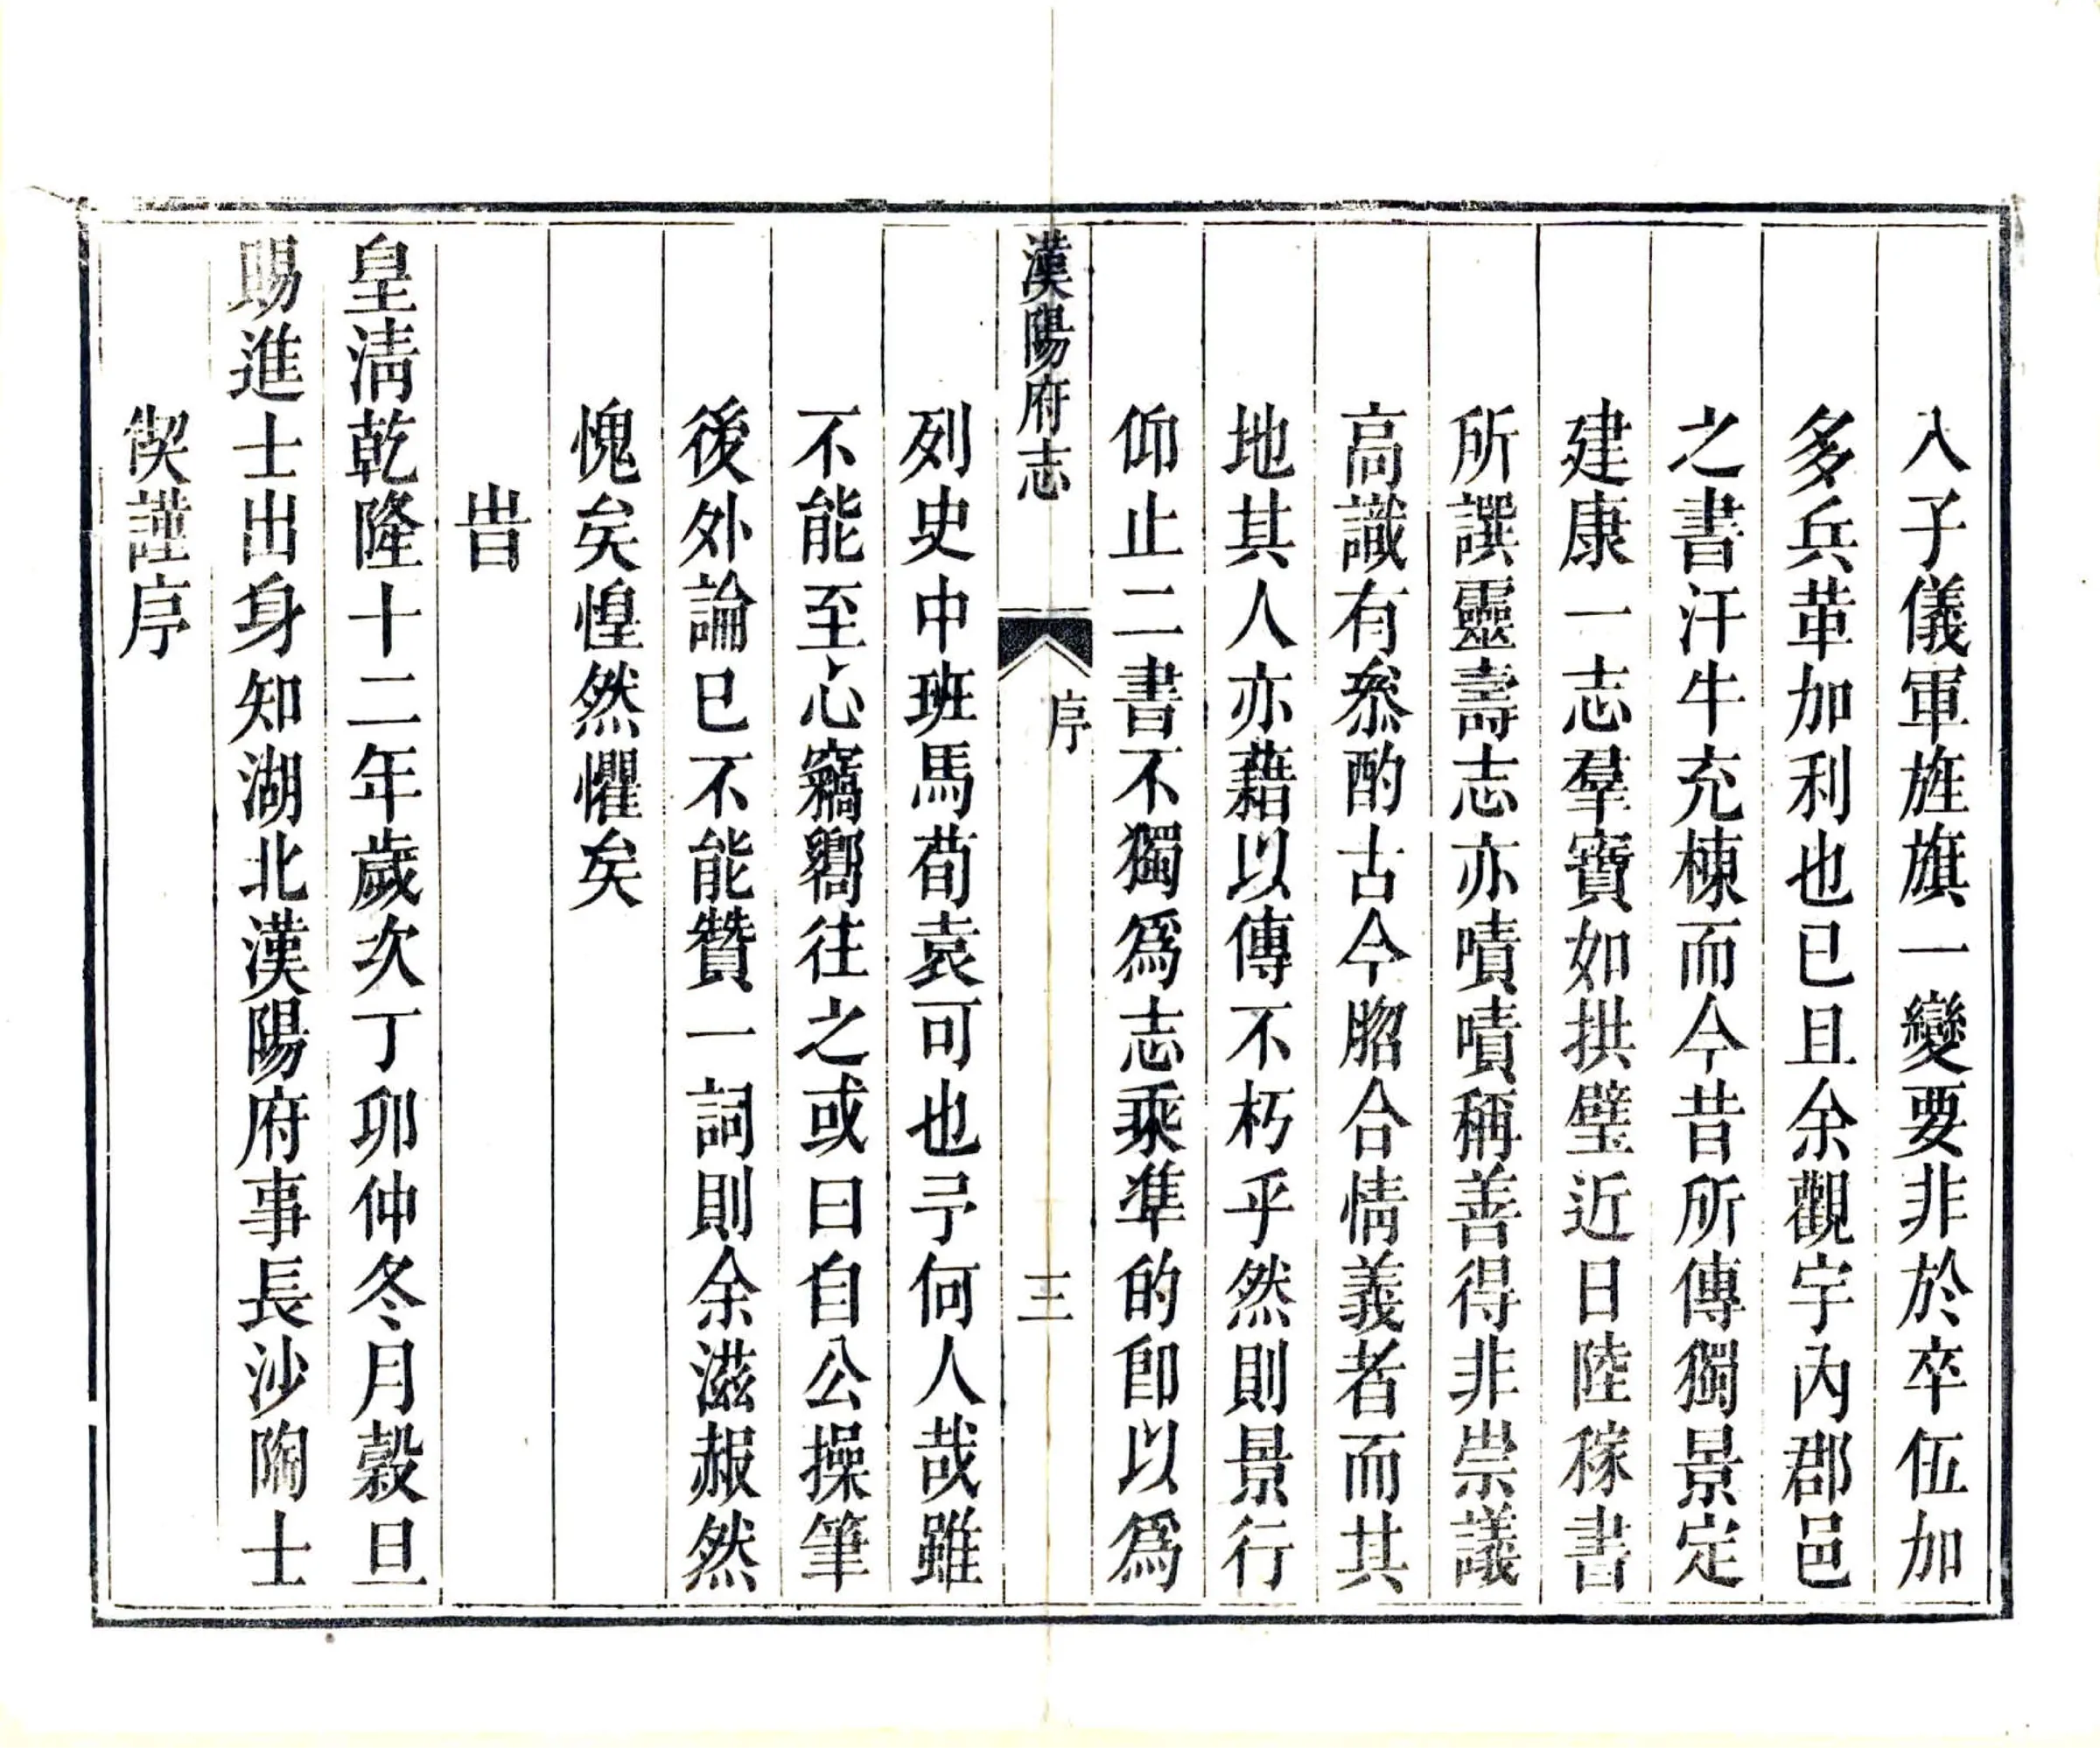 入子儀軍旌旗一變要非於卒伍加
多兵革加利也已且余觀宇內郡邑
之書汗牛充棟而今昔所傳獨景定
建康一志羣寶如拱璧近日陸稼書
所譔靈壽志亦嘖嘖稱善得非崇議
高識有叅酌古今脗合情義者而其
地其人亦藉以傳不朽乎然則景行
仰止二書不獨爲志乘準的卽以爲
漢陽府志
序
三
列史中班馬荀袁可也予何人哉雖
不能至心竊嚮往之或曰自公操筆
後外論已不能贊一詞則余滋赧然
愧矣惶然懼矣
旹
皇淸乾隆十二年歲次丁卯仲冬月穀旦
賜進士出身知湖北漢陽府事長沙陶士
偰謹序